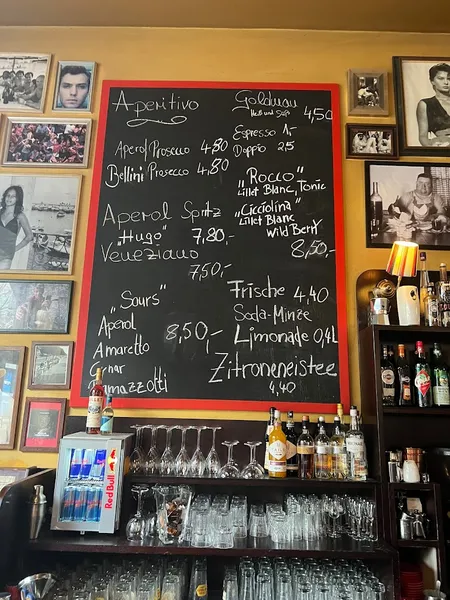 Aperitivo
Aperol Prosecco 4,80
Bellini Prosecco 4,80
Aperol Spritz
"Hugo" 7,80,-
Veneziano
7,50,-
"Sours"
Aperol
Amaretto 8,50,-
Ramazzotti
Goldmau 4,50
Hell und Süß
Espresso 1,-
Doppio 2,5
"Rocco"
Lillet Blanc, Tonic
"Cicciolina"
Lillet Blanc
Wild Berry
8,50,-
Frische 4,40
Soda-Minze
Limonade 0,4L
Zitroneneistee
4,40
Red Bull